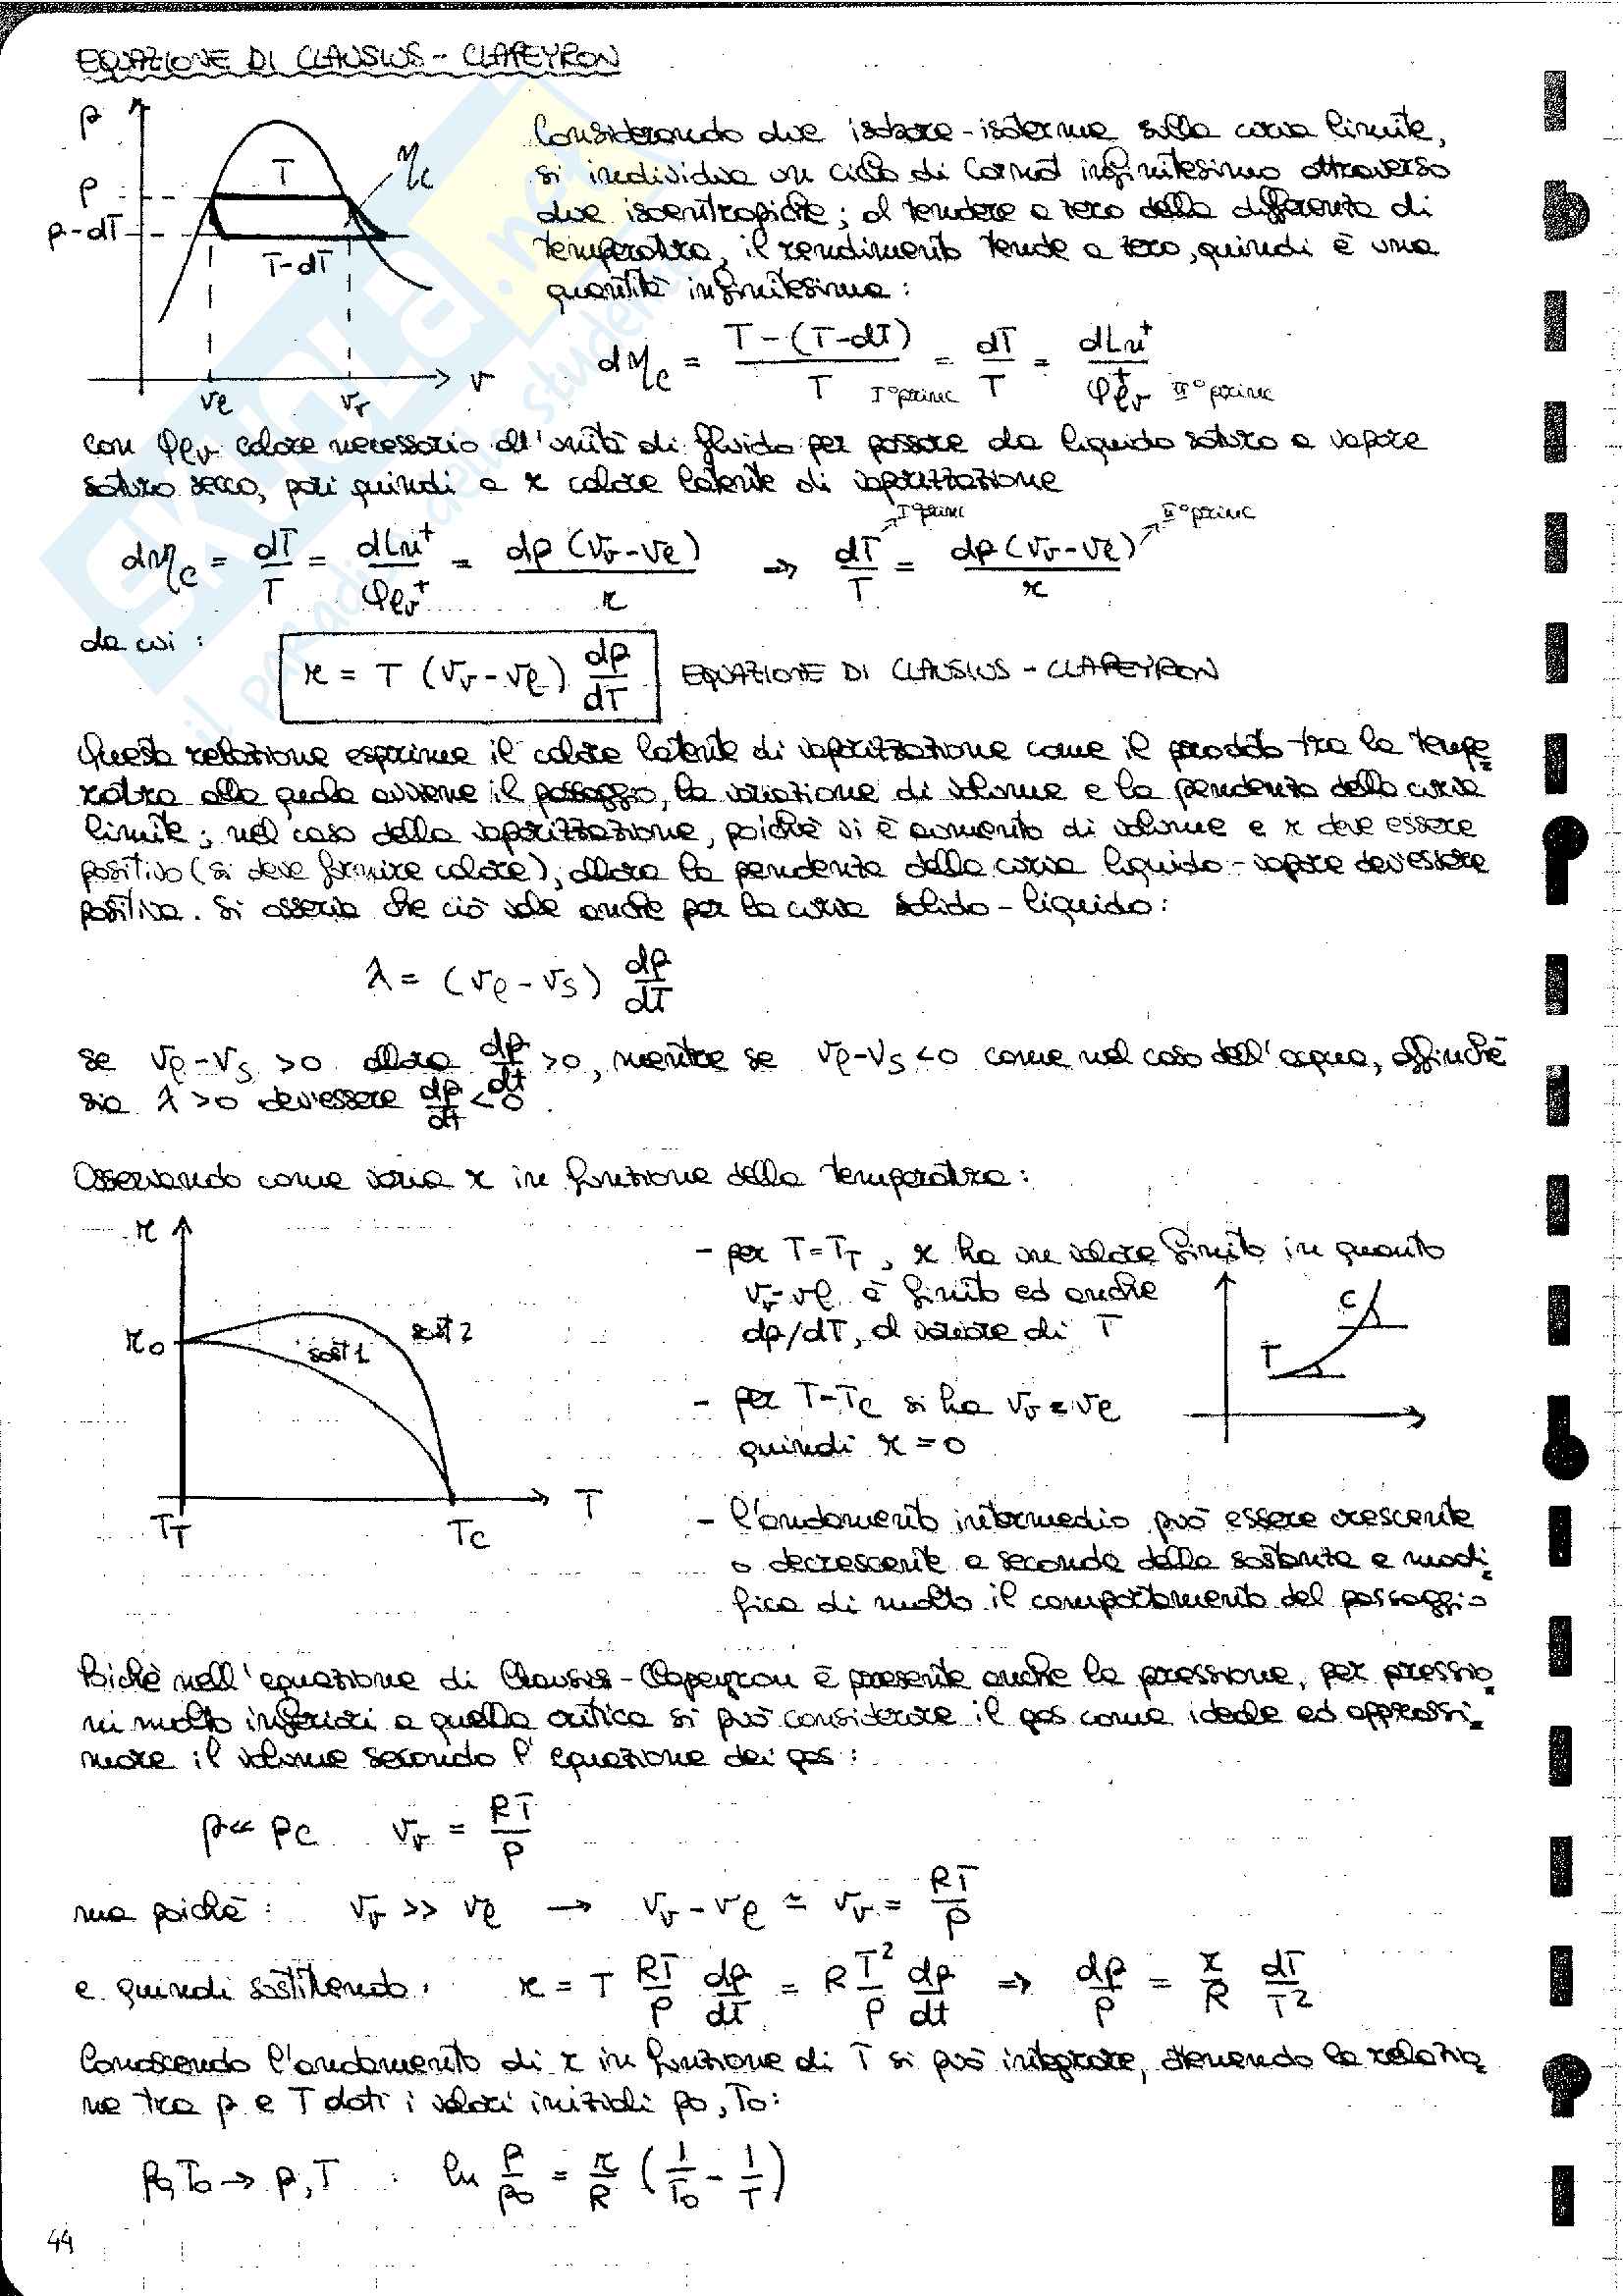 EQUAZIONE DI CLAUSIUS - CLAPEYRON
p
p
p-dT
T
T-dT
ηc
v
vℓ
vv
Considerando due isobare-isoterme sulla curva limite,
si individua un ciclo di Carnot infinitesimo attraverso
due isoentropiche; al tendere a zero della differenza di
temperatura, il rendimento tende a zero, quindi è una
quantità infinitesima:
dηc = T-(T-dT) / T = dT / T = dLu⁺ / φℓv⁺
I° princ II° princ
con φℓv calore necessario all'unità di fluido per passare da liquido saturo a vapore
saturo secco, pari quindi a r calore latente di vaporizzazione
dηc = dT / T = dLu⁺ / φℓv⁺ = dp (vv-vℓ) / r => dT / T = dp (vv-vℓ) / r
I° princ II° princ
da cui :
r = T (vv-vℓ) dp / dT EQUAZIONE DI CLAUSIUS - CLAPEYRON
Questa relazione esprime il calore latente di vaporizzazione come il prodotto tra la tempe
ratura alla quale avviene il passaggio, la variazione di volume e la pendenza della curva
limite; nel caso della vaporizzazione, poichè vi è aumento di volume e r deve essere
positivo (si deve fornire calore), allora la pendenza della curva liquido-vapore dev'essere
positiva. Si osserva che ciò vale anche per la curva solido-liquido:
λ = (vℓ-vs) dp / dT
se vℓ-vs >0 allora dp / dt >0, mentre se vℓ-vs <0 come nel caso dell'acqua, affinchè
sia λ >0 dev'essere dp / dt <0.
Osservando come varia r in funzione della temperatura:
r
r0
sost 1
sost 2
TT
Tc
T
- per T=TT, r ha un valore finito in quanto
vv-vℓ è finito ed anche
dp/dT, al variare di T
- per T=Tc si ha vv=vℓ
quindi r=0
T
C
- l'andamento intermedio può essere crescente
o decrescente a seconda della sostanza e modi
fica di molto il comportamento del passaggio
Poichè nell'equazione di Clausius-Clapeyron è presente anche la pressione, per pressio
ni molto inferiori a quella critica si può considerare il gas come ideale ed approssi
mare il volume secondo l'equazione dei gas:
p << pc vv = RT / p
ma poichè: vv >> vℓ → vv - vℓ ≃ vv = RT / p
e quindi sostituendo: r = T RT / p dp / dT = R T² / p dp / dt => dp / p = r / R dT / T²
Conoscendo l'andamento di r in funzione di T si può integrare, ottenendo la relazio
ne tra p e T dati i valori iniziali p0, T0:
p0,T0 → p,T : ln p / p0 = r / R (1 / T0 - 1 / T)
44